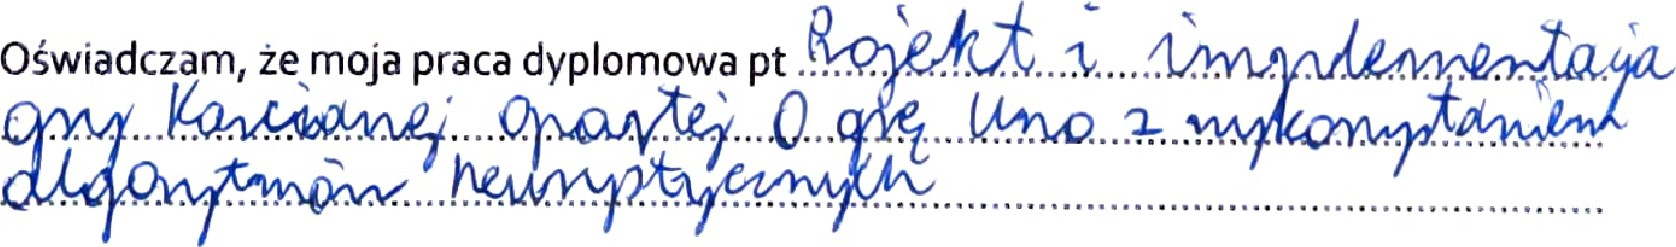 Oświadczam, że moja praca dyplomowa pt Projekt i implementacja
gry karcianej opartej o grę Uno z wykorzystaniem
algorytmów heurystycznych